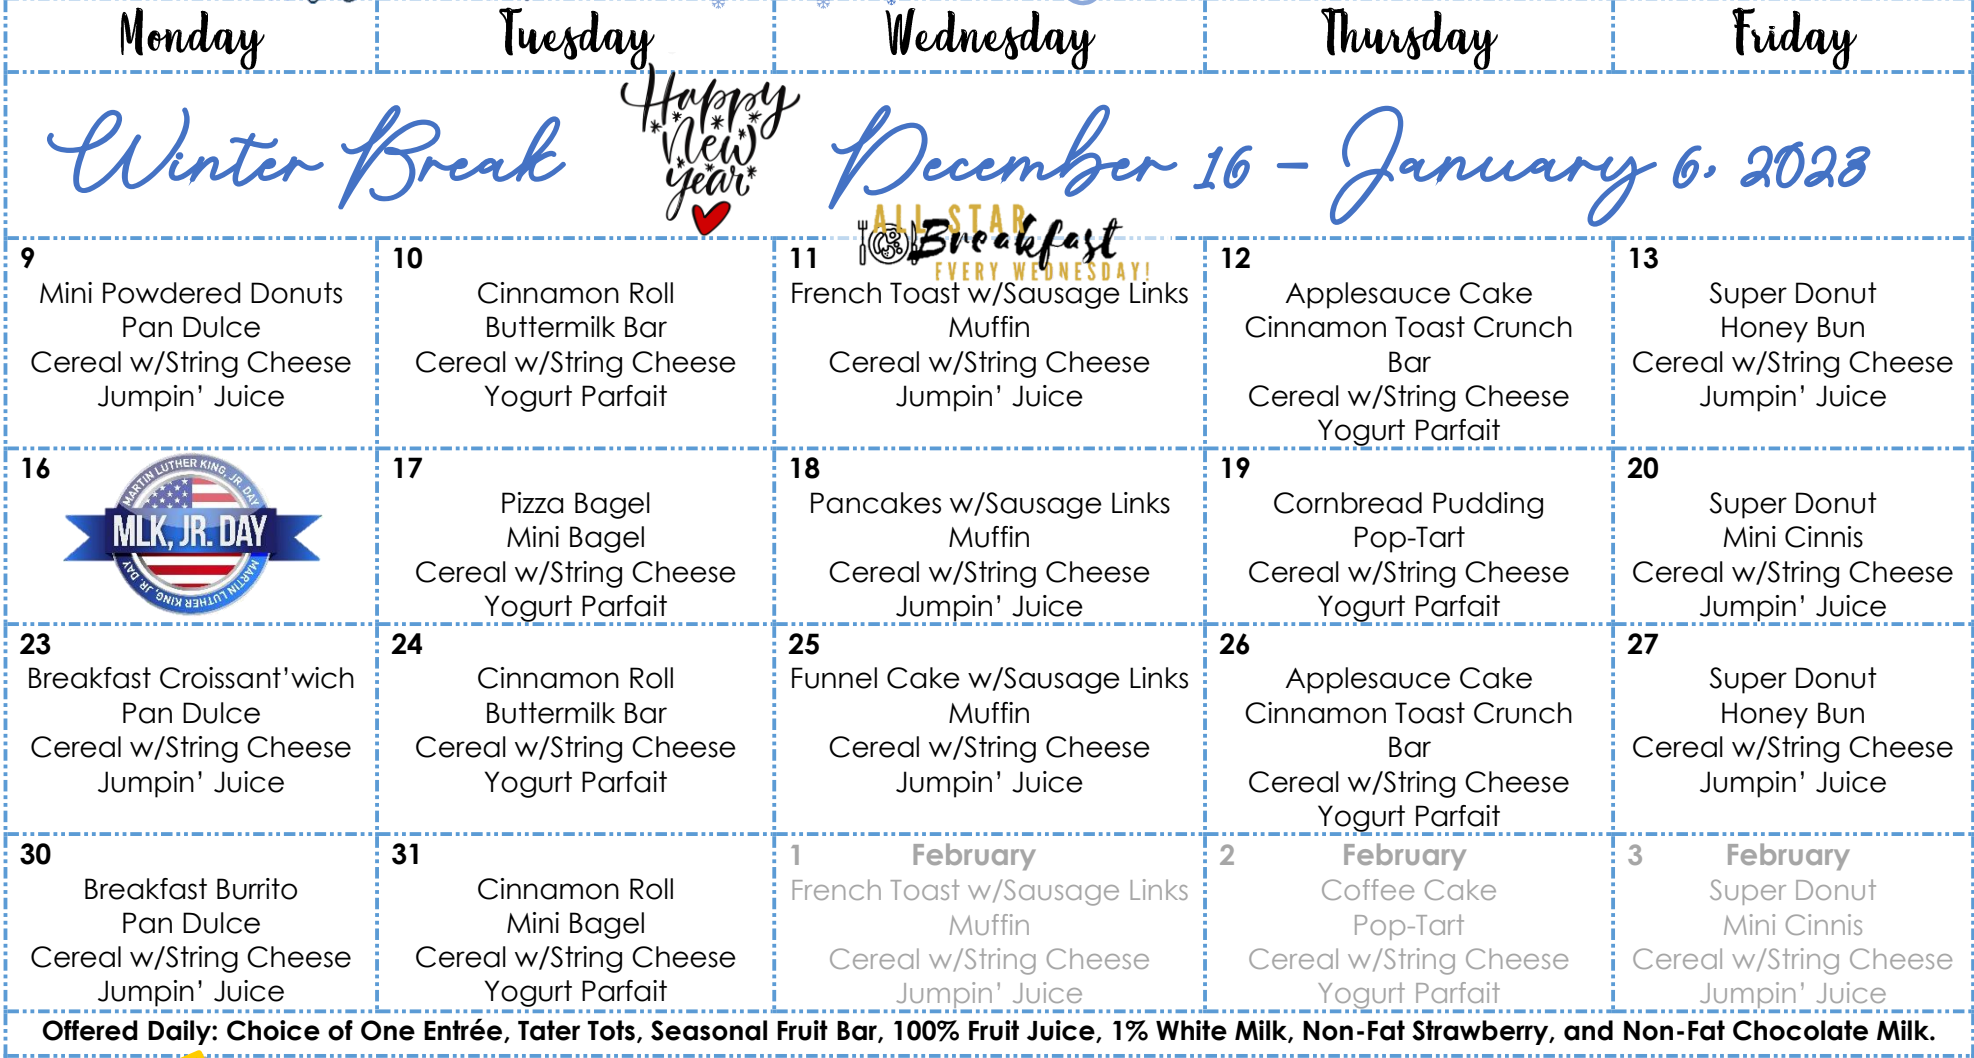 Monday
Tuesday
Wednesday
Thursday
Friday
Winter Break
Happy
New
year
December 16 – January 6, 2023
ALL STAR
Breakfast
EVERY WEDNESDAY!
9
Mini Powdered Donuts
Pan Dulce
Cereal w/String Cheese
Jumpin’ Juice
10
Cinnamon Roll
Buttermilk Bar
Cereal w/String Cheese
Yogurt Parfait
11
French Toast w/Sausage Links
Muffin
Cereal w/String Cheese
Jumpin’ Juice
12
Applesauce Cake
Cinnamon Toast Crunch
Bar
Cereal w/String Cheese
Yogurt Parfait
13
Super Donut
Honey Bun
Cereal w/String Cheese
Jumpin’ Juice
16
MARTIN LUTHER KING, JR. DAY
MLK, JR. DAY
MARTIN LUTHER KING, JR. DAY
17
Pizza Bagel
Mini Bagel
Cereal w/String Cheese
Yogurt Parfait
18
Pancakes w/Sausage Links
Muffin
Cereal w/String Cheese
Jumpin’ Juice
19
Cornbread Pudding
Pop-Tart
Cereal w/String Cheese
Yogurt Parfait
20
Super Donut
Mini Cinnis
Cereal w/String Cheese
Jumpin’ Juice
23
Breakfast Croissant’wich
Pan Dulce
Cereal w/String Cheese
Jumpin’ Juice
24
Cinnamon Roll
Buttermilk Bar
Cereal w/String Cheese
Yogurt Parfait
25
Funnel Cake w/Sausage Links
Muffin
Cereal w/String Cheese
Jumpin’ Juice
26
Applesauce Cake
Cinnamon Toast Crunch
Bar
Cereal w/String Cheese
Yogurt Parfait
27
Super Donut
Honey Bun
Cereal w/String Cheese
Jumpin’ Juice
30
Breakfast Burrito
Pan Dulce
Cereal w/String Cheese
Jumpin’ Juice
31
Cinnamon Roll
Mini Bagel
Cereal w/String Cheese
Yogurt Parfait
1 February
French Toast w/Sausage Links
Muffin
Cereal w/String Cheese
Jumpin’ Juice
2 February
Coffee Cake
Pop-Tart
Cereal w/String Cheese
Yogurt Parfait
3 February
Super Donut
Mini Cinnis
Cereal w/String Cheese
Jumpin’ Juice
Offered Daily: Choice of One Entrée, Tater Tots, Seasonal Fruit Bar, 100% Fruit Juice, 1% White Milk, Non-Fat Strawberry, and Non-Fat Chocolate Milk.